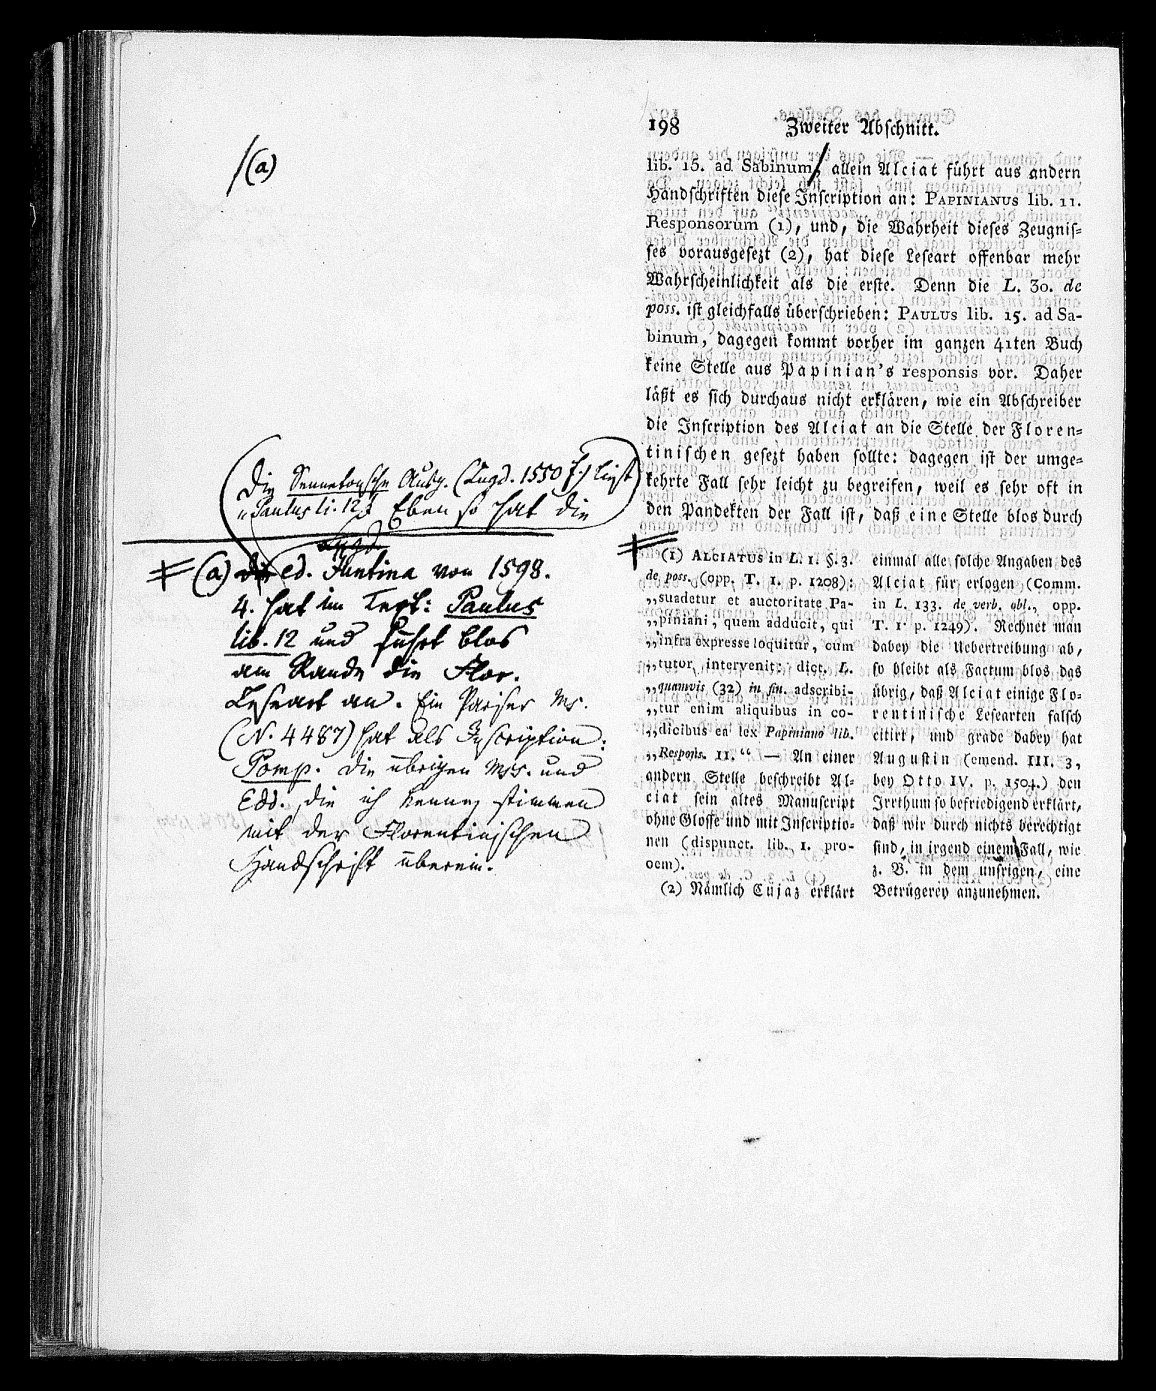 198 Zweiter Abschnitt.
lib. 15. ad Sabinum, allein Alciat führt aus andern
Handschriften diese Inscription an: PAPINIANUS lib. 11.
Responsorum (1), und, die Wahrheit dieses Zeugnis-
ses vorausgesezt (2), hat diese Leseart offenbar mehr
Wahrscheinlichkeit als die erste. Denn die L. 30. de
poss. ist gleichfalls überschrieben: PAULUS lib. 15. ad Sa-
binum, dagegen kommt vorher im ganzen 41ten Buch
keine Stelle aus Papinian's responsis vor. Daher
läßt es sich durchaus nicht erklären, wie ein Abschreiber
die Inscription des Alciat an die Stelle der Floren-
tinischen gesezt haben sollte: dagegen ist der umge-
kehrte Fall sehr leicht zu begreifen, weil es sehr oft in
den Pandekten der Fall ist, daß eine Stelle blos durch
(1) ALCIATUS in L. 1. §. 3.
de poss. (opp. T. 1. p. 1208):
„suadetur et auctoritate Pa-
„piniani, quem adducit, qui
„infra expresse loquitur, cum
„tutor intervenit: dict. L.
„quamvis (32) in fin. adscribi-
„tur enim aliquibus in co-
„dicibus ea lex Papiniano lib.
„Respons. 11.“ — An einer
andern Stelle beschreibt Al-
ciat sein altes Manuscript
ohne Glosse und mit Inscriptio-
nen (dispunct. lib. 1. pro-
oem).
(2) Nämlich Cujaz erklärt
einmal alle solche Angaben des
Alciat für erlogen (Comm.
in L. 133. de verb. obl., opp.
T. 1. p. 1249). Rechnet man
dabey die Uebertreibung ab,
so bleibt als Factum blos das
übrig, daß Alciat einige Flo-
rentinische Lesearten falsch
citirt, und grade dabey hat
Augustin (emend. III. 3,
bey Otto IV. p. 1504.) den
Irrthum so befriedigend erklärt,
daß wir durch nichts berechtigt
sind, in irgend einem Fall, wie
z. B. in dem unsrigen, eine
Betrügerey anzunehmen.
/(a)
Die Sennetonsche Ausg. (Lugd. 1550 f.) liest
„Paulus li. 12.“ Eben so hat die
(a) die ed. Juntina von 1598.
4. hat im Text: Paulus
lib. 12 und führt blos
am Rande die Flor.
Leseart an. Ein Pariser Ms.
(N. 4487) hat als Inscription:
Pomp. Die übrigen Mss. und
Edd., die ich kenne, stimmen
mit der Florentinischen
Handschrift überein.